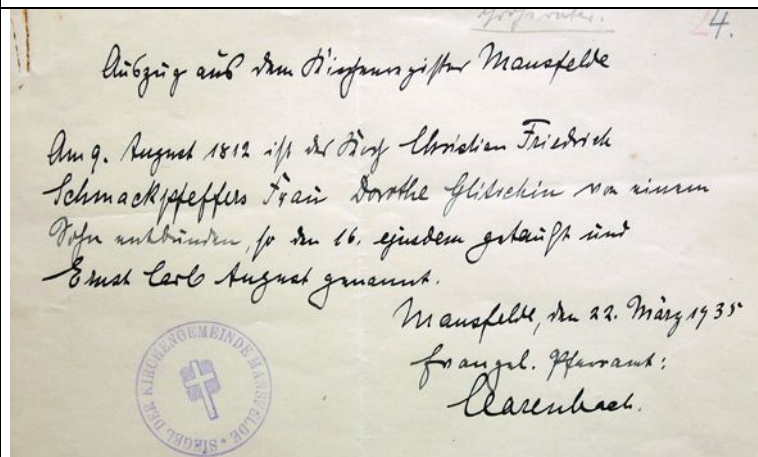 Großvater. 24.
Auszug aus dem Kirchenregister Mansfelde
Am 9. August 1812 ist des Christian Friedrich
Schmackpfeffers Frau Dorothe Glitschin von einem
Sohn entbunden, so den 16. ejusdem getauft und
Ernst Carl August genannt.
Mansfelde, den 22. März 1935
Evangel. Pfarramt:
Clarenbach.
SIEGEL DER KIRCHENGEMEINDE MANSFELDE